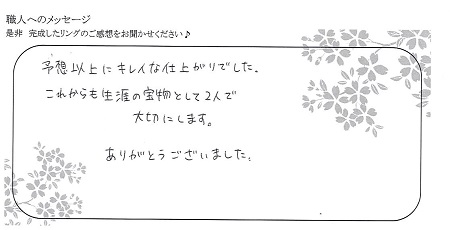 職人へのメッセージ
是非 完成したリングのご感想をお聞かせください♪
予想以上にキレイな仕上がりでした。
これからも生涯の宝物として2人で
大切にします。
ありがとうございました。